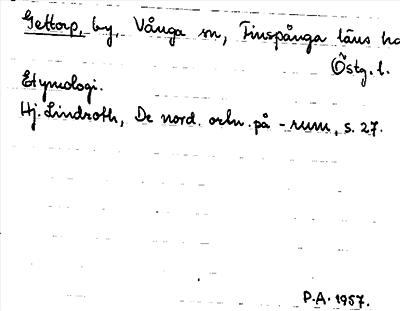 Gettorp, by, Vånga sn, Finspånga läns
Östg. l.
Etymologi.
Hj. Lindroth, De nord. ortn. på -rum, s. 27.
P.A. 1957.